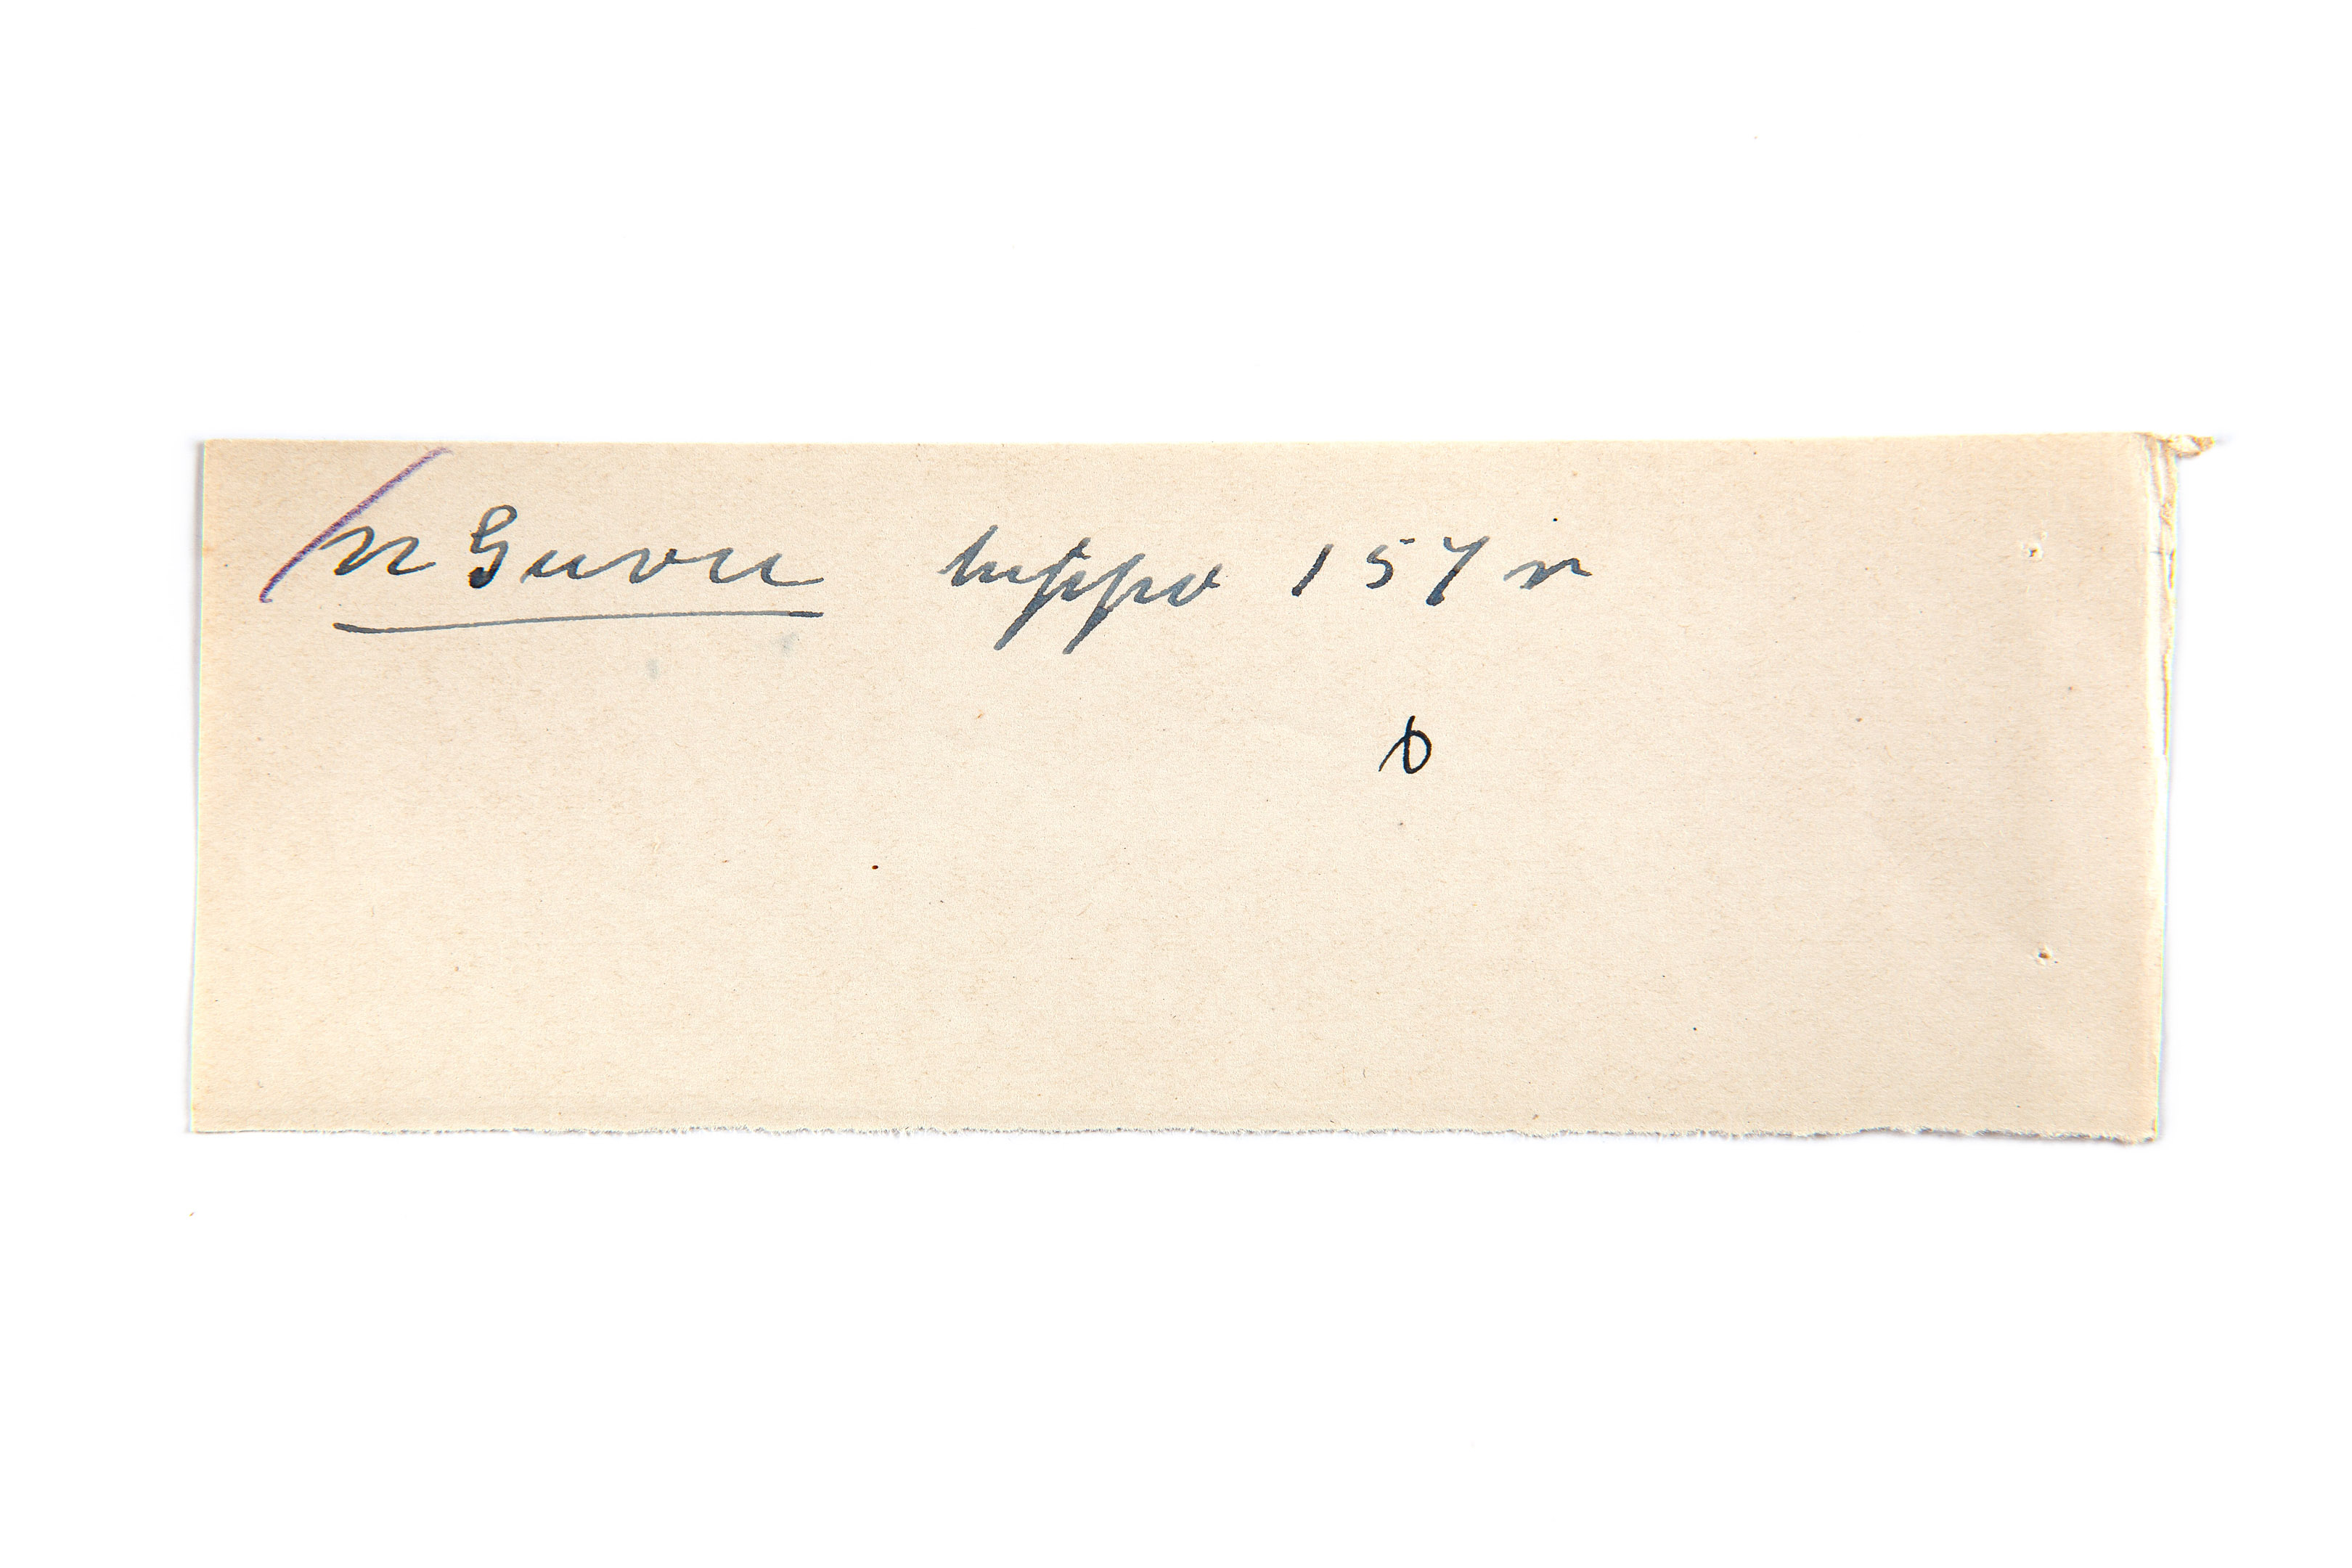 nGuvu hippo 157 r
b